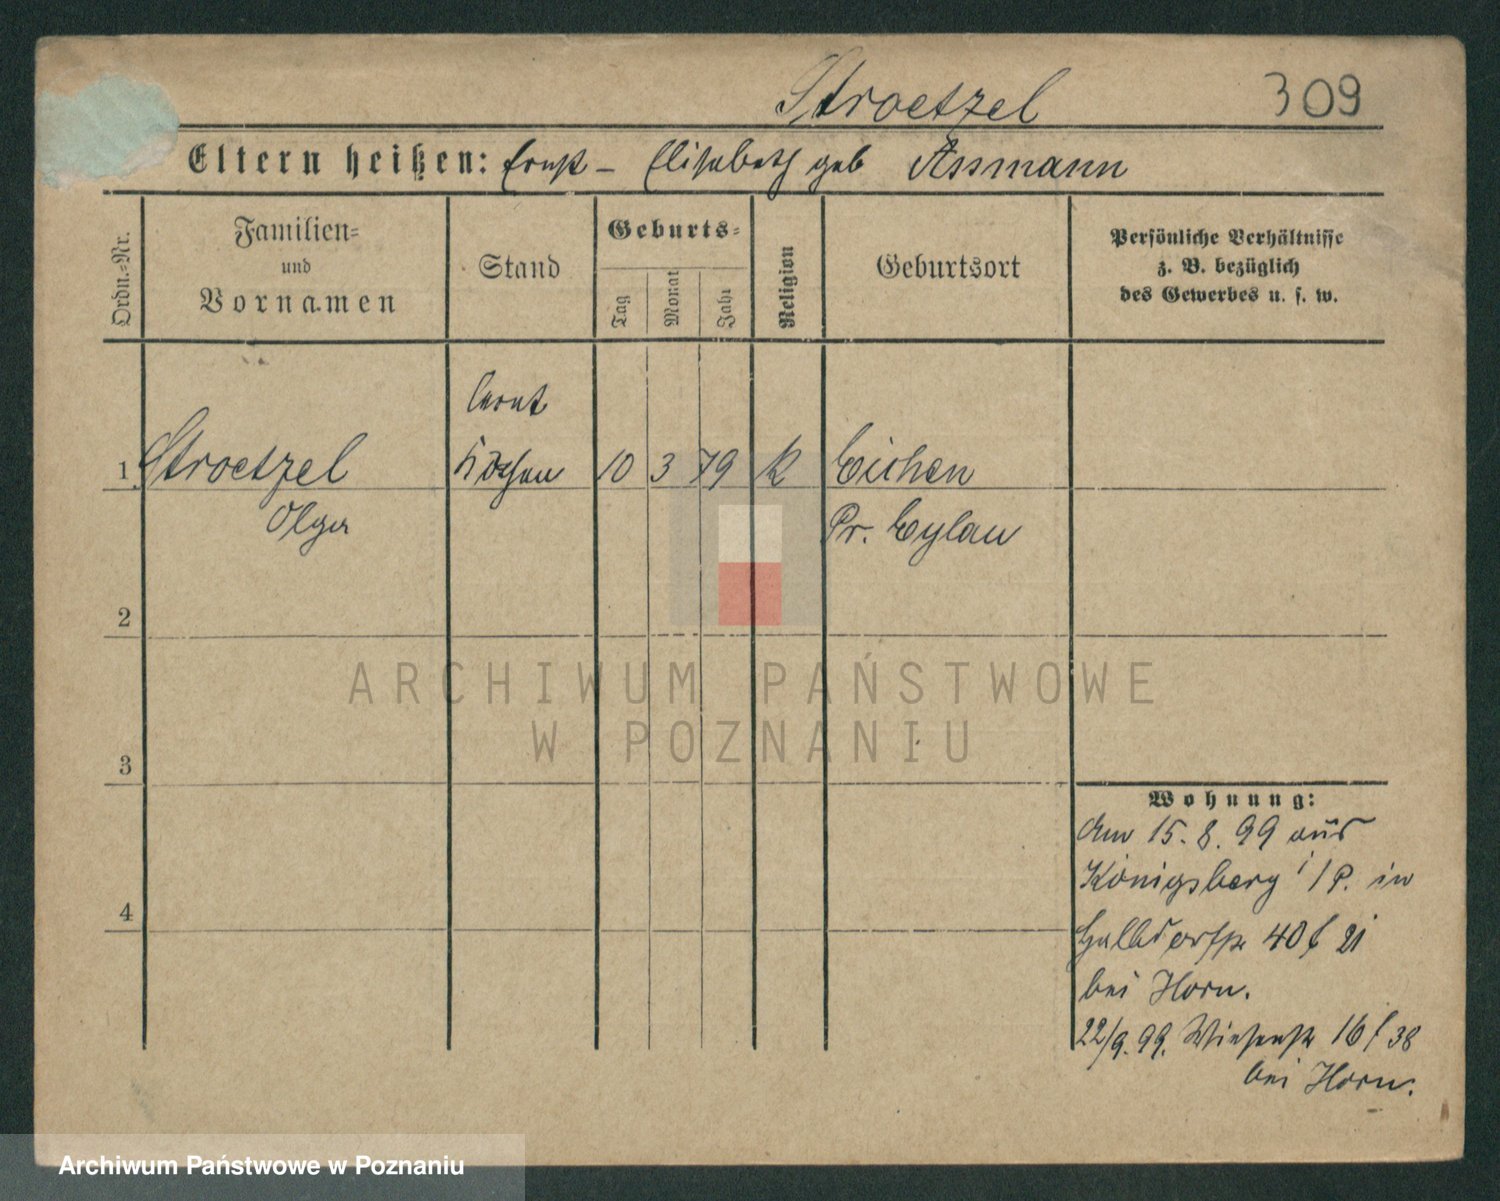 Stroetzel 309
Eltern heißen: Ernst – Elisabeth geb Assmann
Ordn.-Nr.
Familien-
und
Vornamen
Stand
Geburts-
Tag
Monat
Jahr
Religion
Geburtsort
Persönliche Verhältnisse
z. B. bezüglich
des Gewerbes u. s. w.
lernt
1 Stroetzel Kochen 10 3 79 k Eichen
Olga Pr. Eylau
2
3
4
ARCHIWUM PAŃSTWOWE
W POZNANIU
Wohnung:
Am 15. 8. 99 aus
Königsberg i/P. in
40 f 21
bei Horn.
22/9. 99. Wiesenstr 16 f 38
bei Horn.
Archiwum Państwowe w Poznaniu